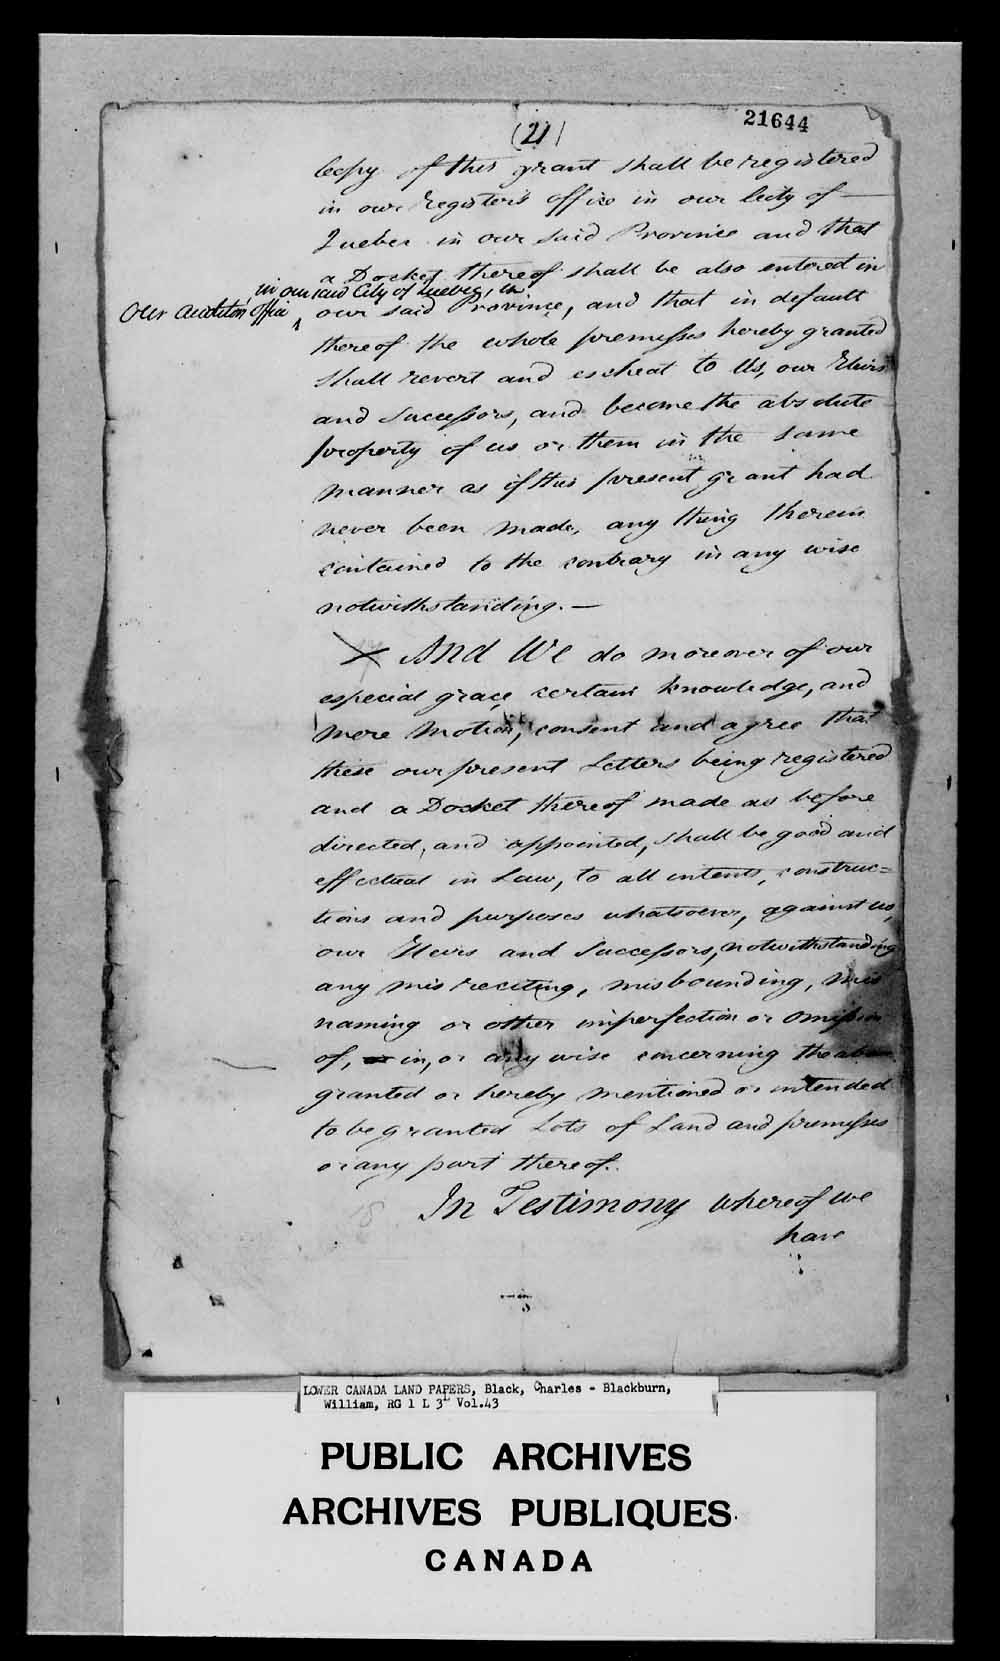 21644
(21)
Copy of this grant shall be registered
in our Register's office in our City of
Quebec in our said Province and that
a Docket thereof shall be also entered in
in our said City of Quebec, in
Our Auditors Office
our said Province, and that in default
thereof the whole premisses hereby granted
shall revert and escheat to Us, our Heirs
and Successors, and become the absolute
property of us or them in the same
manner as if this present grant had
never been made, any thing therein
contained to the contrary in any wise
notwithstanding. —
And We do moreover of our
especial grace, certain knowledge, and
mere motion, consent and agree that
these our present Letters being registered
and a Docket thereof made as before
directed, and appointed, shall be good and
effectual in Law, to all intents, construc=
tions and purposes whatsoever, against us,
our Heirs and Successors, notwithstanding
any mis reciting, misbounding, mis
naming or other imperfection or Omission
of, in, or any wise concerning the above
granted or hereby mentioned or intended
to be granted Lots of Land and premisses
or any part thereof.
In Testimony whereof we
have
LOWER CANADA LAND PAPERS, Black, Charles - Blackburn,
William, RG 1 L 3L Vol.43
PUBLIC ARCHIVES
ARCHIVES PUBLIQUES
CANADA